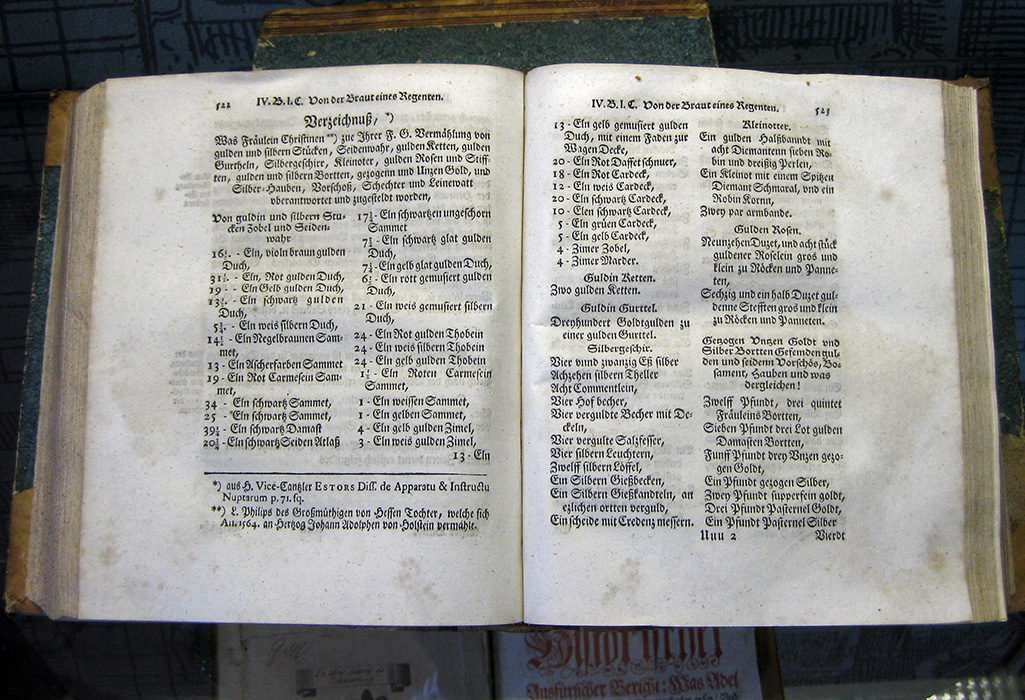 522
IV. B. I. C. Von der Braut eines Regenten.
Verzeichnuß, *)
Was Fräulein Christinen **) zue Ihrer F. G. Vermählung von
gulden und silbern Stücken, Seidenwahr, gulden Ketten, gulden
Gurtheln, Silbergeschirr, Kleinoter, gulden Rosen und Stiff-
ten, gulden und silbern Bortten, gezogenn und Unzen Gold, und
Silber-Hauben, Vorschoß, Schechter und Leinewatt
überantwortet und zugestelt worden,
Von guldin und silbern Stu-
cken Zobel und Seiden-
wahr
16½. - Eln, violn braun gulden
Duch,
31½. - Eln, Rot gulden Duch,
19 - - Eln Gelb gulden Duch,
13½. - Eln schwartz gulden
Duch,
5¾. - Eln weis silbern Duch,
14½ - Eln Negelbraunen Sam-
met,
13 - Eln Ascherfarben Sammet
19 - Eln Rot Carmesein Sam-
met,
34 - Eln schwartz Sammet,
25 - Eln schwartz Sammet,
39¼ - Eln schwartz Damast
20½ - Eln schwartz Seiden Atlaß
17½ - Eln schwartzen ungeschorn
Sammet
7½ - Eln schwartz glat gulden
Duch,
7½ - Eln gelb glat gulden Duch,
6½ - Eln rott gemusiert gulden
Duch,
21 - Eln weis gemusiert silbern
Duch,
24 - Eln Rot gulden Thobein
24 - Eln weis silbern Thobein
24 - Eln gelb gulden Thobein
1½ - Eln Roten Carmesein
Sammet,
1 - Eln weissen Sammet,
1 - Eln gelben Sammet,
4 - Eln gelb gulden Zimel,
3 - Eln weis gulden Zimel,
13 - Eln
*) aus H. Vice-Cantzler ESTORS Diss. de Apparatu & Instructu
Nuptarum p. 71. sq.
**) L. Philips des Großmüthigen von Hessen Tochter, welche sich
An. 1564. an Hertzog Johann Adolphen von Holstein vermählt.
IV. B. I. C. Von der Braut eines Regenten.
523
13 - Eln gelb gemusiert gulden
Duch, mit einem Faden zur
Wagen Decke,
20 - Eln Rot Daffet schnuer,
18 - Eln Rot Cardeck,
12 - Eln weis Cardeck,
20 - Eln schwartz Cardeck,
10 - Elen schwartz Cardeck,
5 - Eln grüen Cardeck,
5 - Eln gelb Cardeck,
4 - Zimer Zobel,
4 - Zimer Marder.
Guldin Ketten.
Zwo gulden Ketten.
Guldin Gurttel.
Dreyhundert Goldtgulden zu
einer gulden Gurttel.
Silbergeschir.
Vier unnd zwanzig Eß silber
Achzehen silbern Theller
Acht Commentlein,
Vier Hof becher,
Vier verguldte Becher mit De-
ckeln,
Vier vergulte Salzfesser,
Vier silbern Leuchtern,
Zwelff silbern Löffel,
Ein Silbern Gießbecken,
Ein Silbern Gießkandteln, an
ezlichen ortten verguld,
Ein scheide mit Credenz messern.
Kleinotter.
Ein gulden Halßbanndt mit
acht Diemantenn sieben Ro-
bin und dreißig Perlen,
Ein Kleinot mit einem Spitzen
Diemant Schmaral, und ein
Robin Kornn,
Zwey par armbande.
Gulden Rosen.
Neunzehen Duzet, und acht stück
guldener Roselein gros und
klein zu Röcken und Panne-
ten,
Sechzig und ein halb Duzet gul-
denne Stefften gros und klein
zu Röcken und Panneten.
Gezogen Vnzen Goldt vnd
Silber Bortten Gefenden gul-
den und seidenn Vorschös, Bo-
sament, Hauben und was
dergleichen!
Zwelff Pfundt, drei quintet
Fräuleins Bortten,
Sieben Pfundt drei Lot gulden
Damasten Bortten,
Funff Pfundt drey Vnzen gezo-
gen Goldt,
Ein Pfundt gezogen Silber,
Zwey Pfundt supperfein goldt,
Drei Pfundt Pasternel Goldt,
Ein Pfundt Pasternel Silber
Uuu 2
Vierdt
Ausfürlicher Bericht: Was Adel